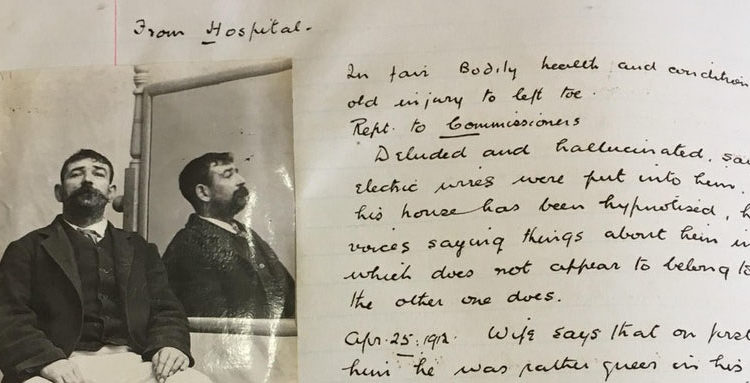 From Hospital.
In fair Bodily health and condition
old injury to left toe.
Rept. to Commissioners
Deluded and hallucinated,
electric wires were put into him,
his house has been hypnotised,
voices saying things about him
which does not appear to belong to
the other one does.
Apr. 25. 1912. Wife says that on first
him he was rather queer in his